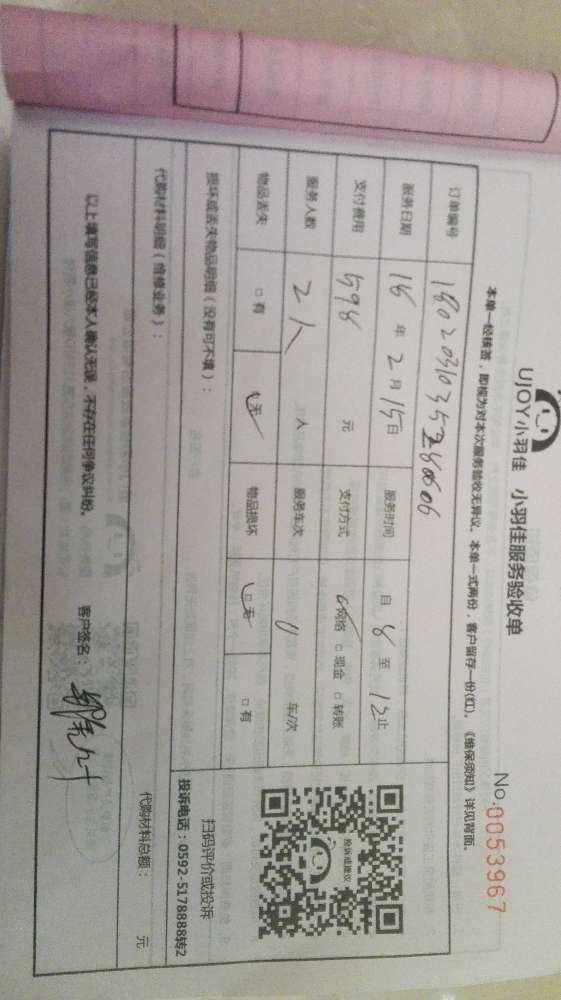 UJOY小羽佳 小羽佳服务验收单
No.0053967
本单一经核签，即视为对本次服务验收无异议。本单一式两份，客户留存一份(红)。《维保须知》详见背面。
订单编号
服务日期 18 年 2 月 15 日 服务时间 自 8 至 12 止
支付费用 598 元 支付方式 网络 □ 现金 □ 转账
服务人数 2人 人 服务车次 0 车/次
物品丢失 □ 有 □ 无 物品损坏 □ 无 □ 有
投诉或建议
扫码评价或投诉
投诉电话：0592-5178888转2
损坏或丢失物品明细（没有可不填）：
代购材料明细（维修业务）：
代购材料总额： 元
以上填写信息已经本人确认无误，不存在任何争议纠纷。
客户签名：